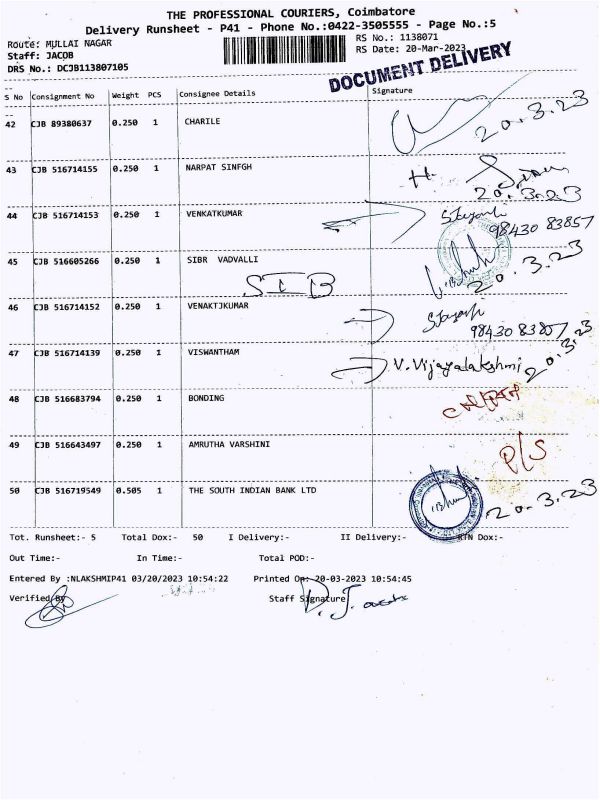 THE PROFESSIONAL COURIERS, Coimbatore
Delivery Runsheet - P41 - Phone No.:0422-3505555 - Page No.:5
Route: MULLAI NAGAR
RS No.: 1138071
Staff: JACOB
RS Date: 20-Mar-2023
DRS No.: DCJB113807105
DOCUMENT DELIVERY
S No Consignment No Weight PCS Consignee Details Signature
42 CJB 89380637 0.250 1 CHARILE 20.3.23
43 CJB 516714155 0.250 1 NARPAT SINFGH 20.3.23
44 CJB 516714153 0.250 1 VENKATKUMAR 98430 83857
45 CJB 516605266 0.250 1 SIBR VADVALLI 20.3.23
SIB
46 CJB 516714152 0.250 1 VENAKTJKUMAR 98430 83857
47 CJB 516714139 0.250 1 VISWANTHAM V. Vijayalakshmi 20.3.23
48 CJB 516683794 0.250 1 BONDING
49 CJB 516643497 0.250 1 AMRUTHA VARSHINI P/S
50 CJB 516719549 0.505 1 THE SOUTH INDIAN BANK LTD 20.3.23
Tot. Runsheet:- 5 Total Dox:- 50 I Delivery:- II Delivery:- RTN Dox:-
Out Time:- In Time:- Total POD:-
Entered By :NLAKSHMIP41 03/20/2023 10:54:22 Printed On: 20-03-2023 10:54:45
Verified By Staff Signature